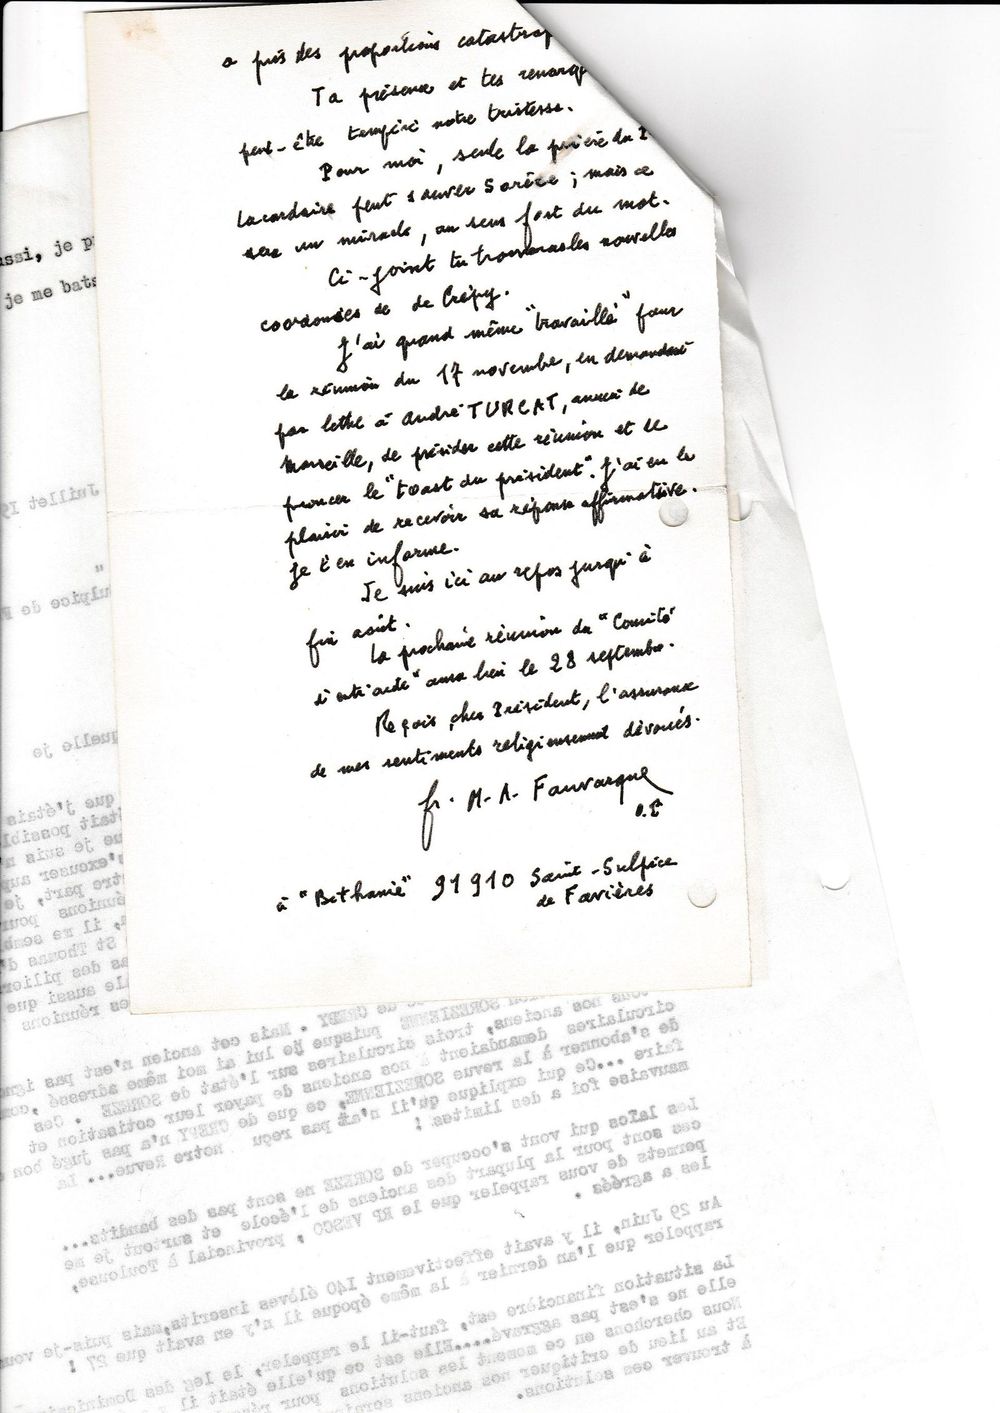 a pris des proportions catastrop
Ta présence et tes remarq
peut-être tempéré notre tristesse.
Pour moi, seule la prière du P
Lacordaire peut sauver Sorèze ; mais ce
sera un miracle, au sens fort du mot.
Ci-joint tu trouveras les nouvelles
coordonnées de de Crépy.
J'ai quand même "travaillé" pour
la réunion du 17 novembre, en demandant
par lettre à André TURCAT, ancien de
Marseille, de présider cette réunion et de
proncer le "toast du président". J'ai eu le
plaisir de recevoir sa réponse affirmative.
Je t'en informe.
Je suis ici au repos jusqu'à
fin août.
La prochaine réunion du "Comité
d'entr'aide" aura lieu le 28 septembre.
Reçois, cher Président, l'assurance
de mes sentiments religieusement dévoués.
fr. M-A. Fauvarque
o.P
à "Béthanie" 91910 Saint-Sulpice
de Favières
ssi, je p
je me bats
Juillet 19
ulpice de F
quelle je
que j'étais
était possibl
ue je suis n'
s'excuser aup
tre part, je
éunions pour
, il me semb
St Thomas d'
as des pilier
le aussi que
es réunions
tous nos anciens
SOREZIENNE de CREPY . Mais cet ancien n'est pas igno
circulaires puisque je lui ai moi même adressé ,com
de s'abonner à la revue SOREZIENNE, trois circulaires sur l'état de SOREZE . Ces
demandaient à nos anciens de payer leur cotisation et
faire ...Ce qui explique qu'il n'ait pas reçu notre Revue... la
mauvaise foi a des limites ; ce que de CREPY n'a pas jugé bon
Les laïcs qui vont s'occuper de SOREZE ne sont pas des bandits...
ces sont pour la plupart des anciens de l'école et surtout je me
permets de vous rappeler que le RP VESCO , provincial à Toulouse,
les a agréés .
Au 29 Juin, il y avait effectivement 140 élèves inscrits,mais puis-je vou
rappeler que l'an dernier à la même époque il n'y en avait que 27 !
La situation financière est, faut-il le rappeler, le leg des Dominic
elle ne s'est pas aggravé....Elle est ce qu'elle était il
Nous cherchons en ce moment les solutions pour
Et au lieu de critiquer nos anciens
à trouver ces solutions.